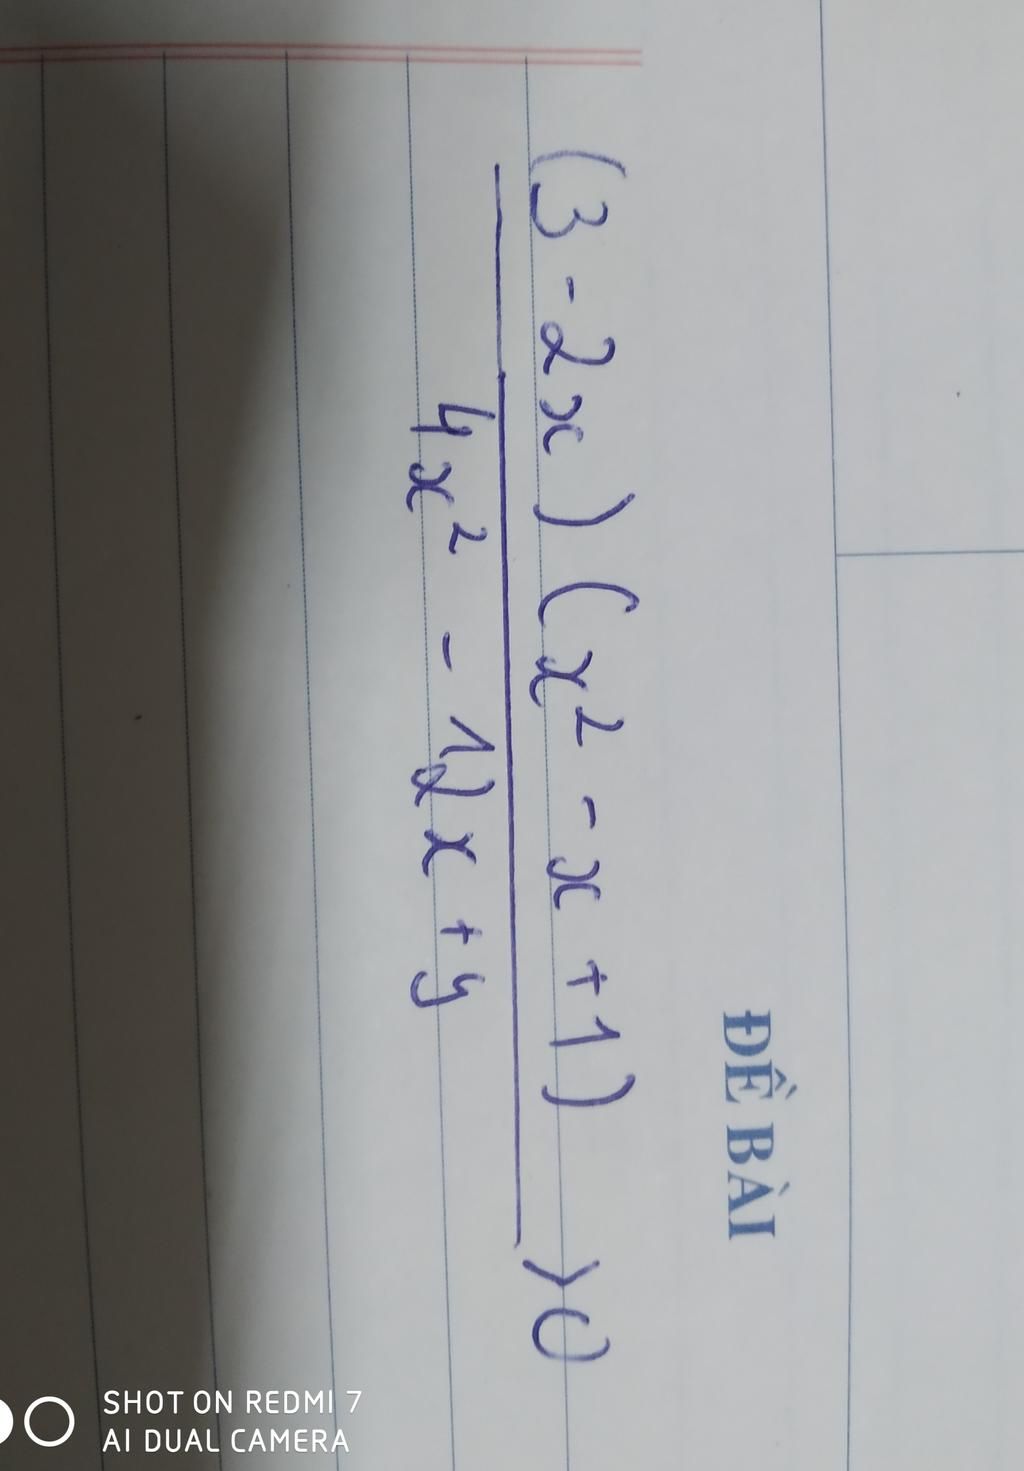 ĐỀ BÀI
(3 - 2x) (x² - x + 1)
4x² - 12x + 9
> 0
SHOT ON REDMI 7
AI DUAL CAMERA